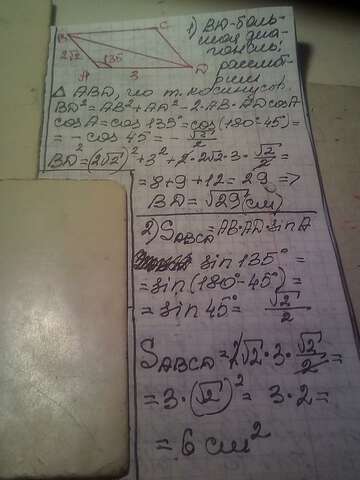 B C
2√2 135°
A 3 D
1) BD-боль-
шая диа-
гональ;
рассмот-
рим
△ ABD, по т. косинусов.
BD²=AB²+AD²-2·AB·ADcosA
cosA=cos135°=cos(180°-45°)=
=-cos45°=-√2/2
BD²=(2√2)²+3²+2·2√2·3·√2/2=
=8+9+12=29 =>
BD=√29(см)
2) SABCD=AB·AD·sinA
sin135°=
=sin(180°-45°)=
=sin45° √2/2
SABCD=2√2·3·√2/2=
=3·(√2)²=3·2=
=6 см²